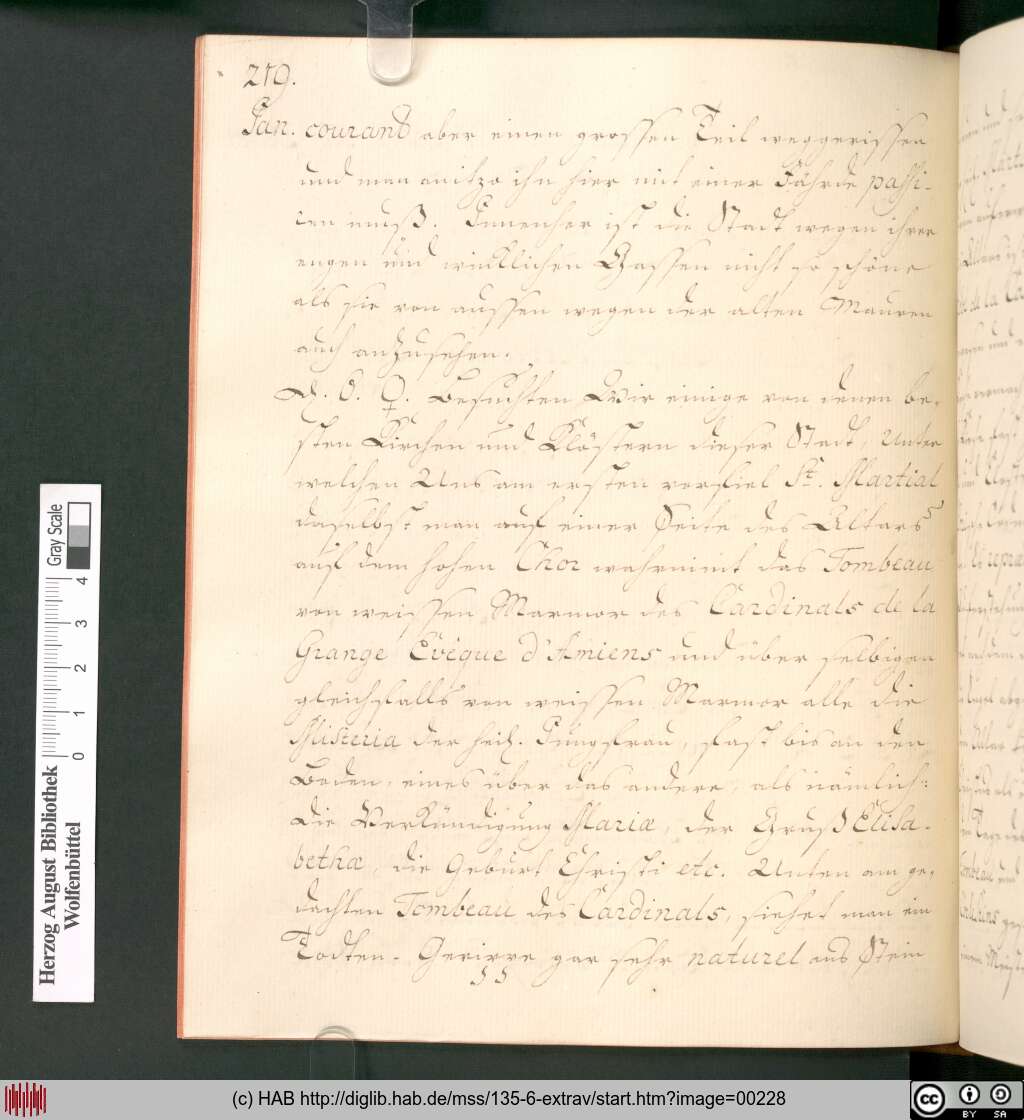 219.
Jan. courant aber einen grossen Teil weggerissen
und man anitzo ihn hier mit einer Fährde passi-
ren muß. Innenher ist die Stadt wegen ihrer
engen und wincklichen Gassen nicht so schöne
als sie von aussen wegen der alten Mauren
auch anzusehen.
D. 6. ♀. Besuchten Wir einige von denen be-
sten Kirchen und Klöstern dieser Stadt, Unter
welchen Uns am ersten vorfiel St. Martial
daselbst man auf einer Seite des Altars
auf dem hohen Chor wahrnimt das Tombeau
von weissen Marmor des Cardinals de la
Grange Evéque d'Amiens und über selbigen
gleichfalls von weissen Marmor alle die
Misteria der heil. Jungfrau, fast bis an den
Boden, eines über das andere, als nämlich:
die Verkündigung Mariæ, der Gruß Elisa-
bethæ, die Geburt Christi etc. Unten am ge-
dachten Tombeau des Cardinals, siehet man ein
Todten-Gerippe gar sehr naturel aus Stein
Herzog August Bibliothek
Wolfenbüttel
0 1 2 3 4
Gray Scale
(c) HAB http://diglib.hab.de/mss/135-6-extrav/start.htm?image=00228
cc BY SA